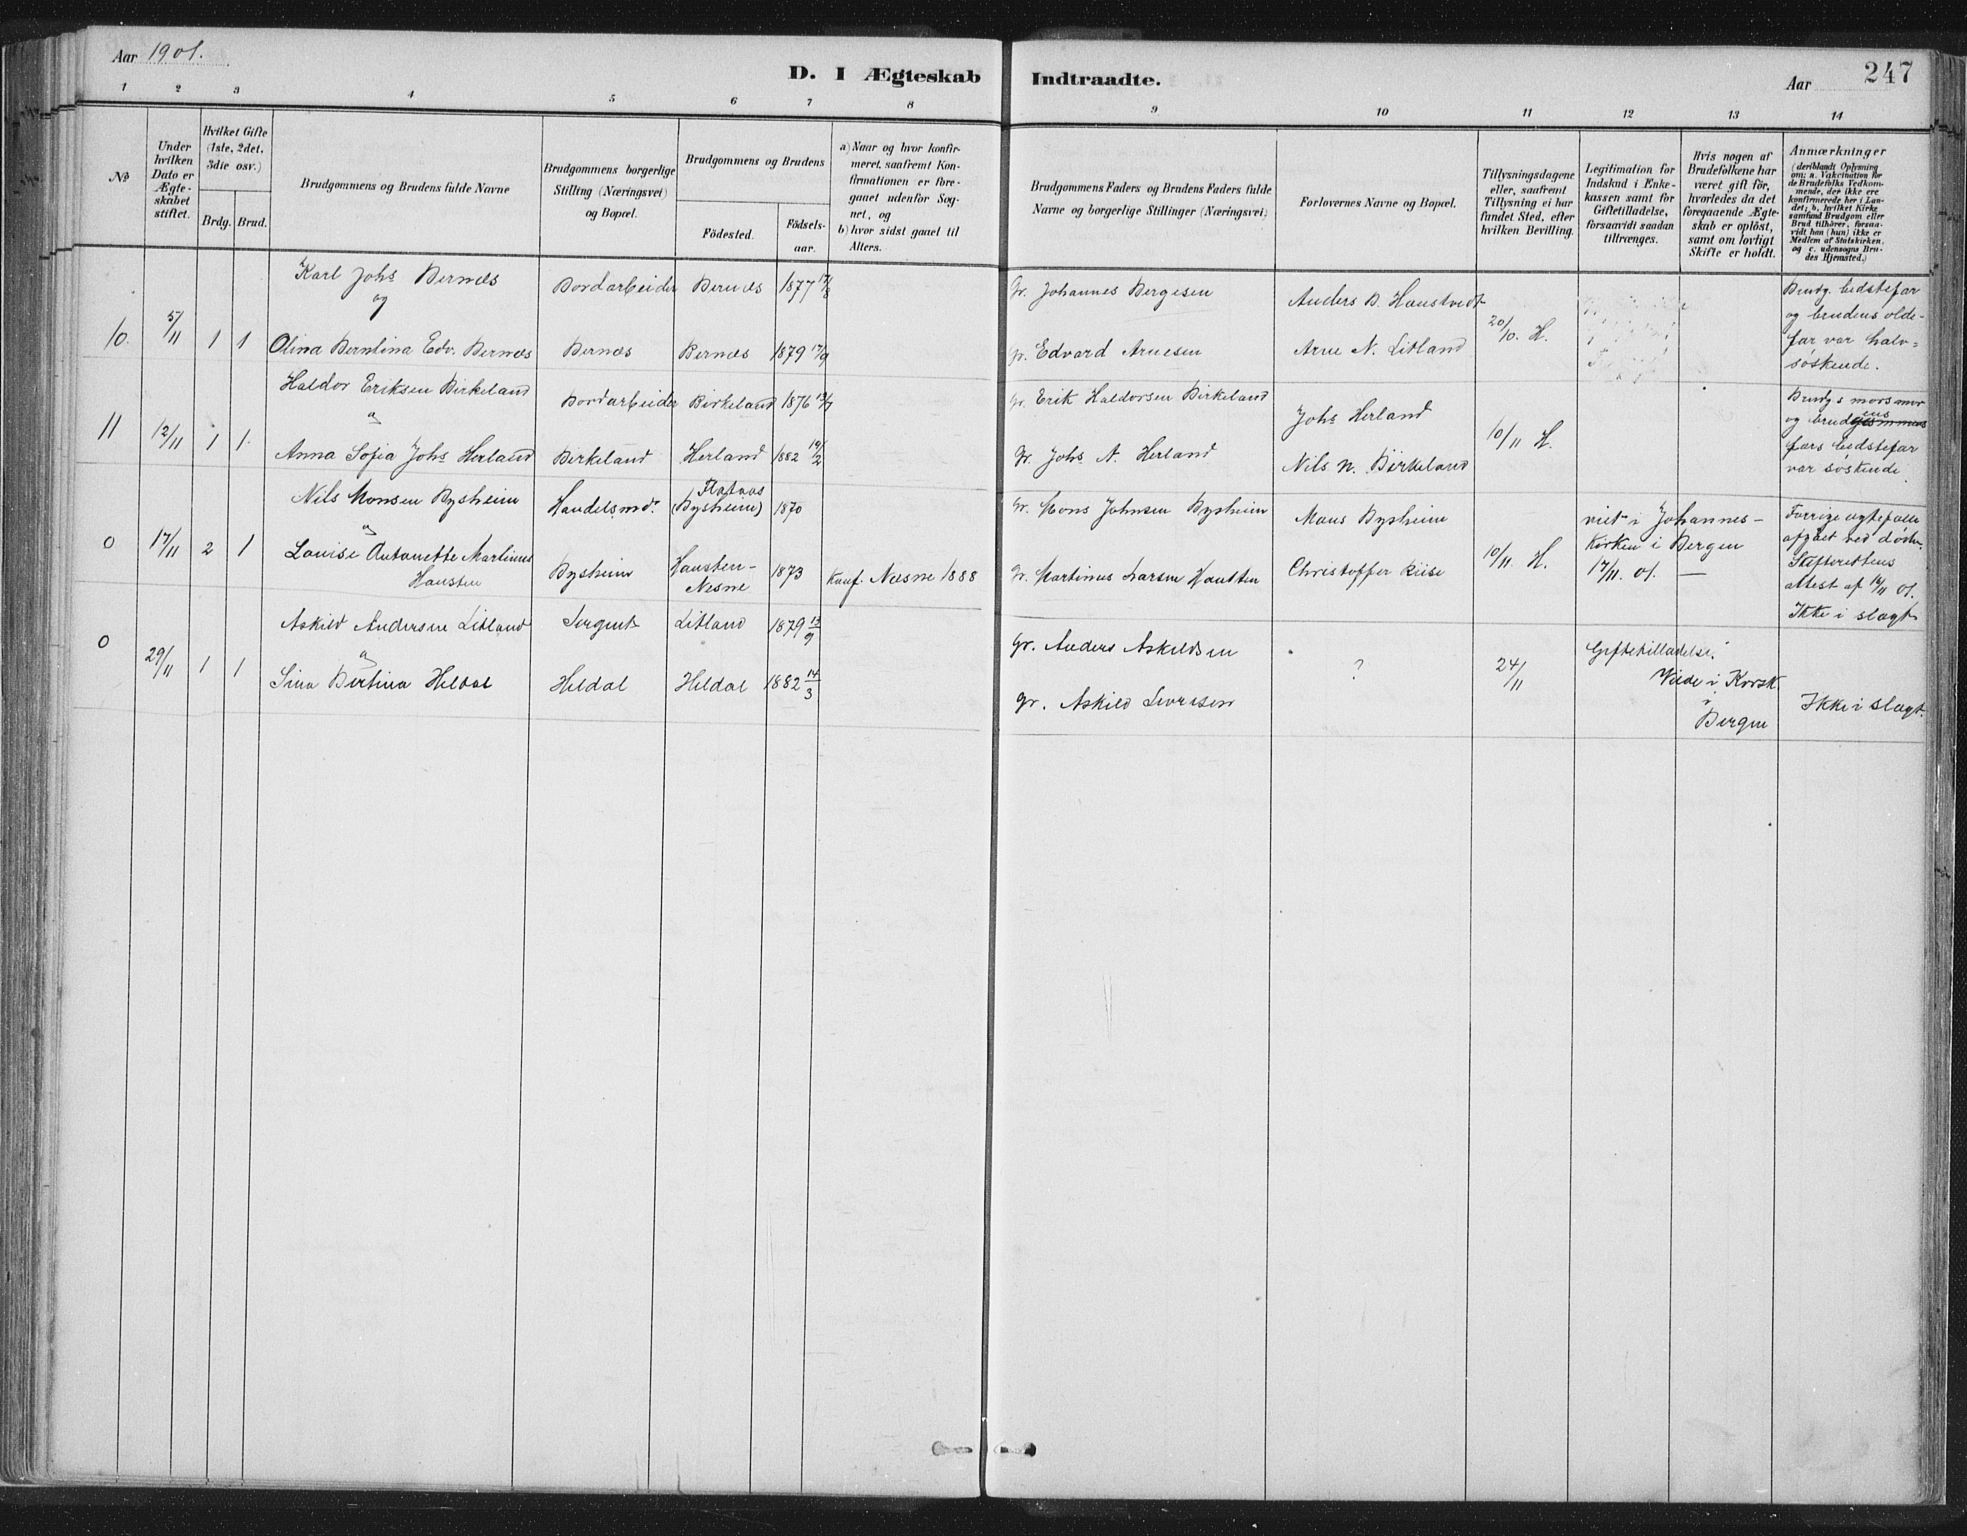 Aar 1901.
D. I Ægteskab Indtraadte.
Aar
247
1 2 3 4 5 6 7 8 9 10 11 12 13 14
No
Under hvilken Dato er Ægteskabet stiftet.
Hvilket Gifte (1ste, 2det, 3die osv.)
Brdg. Brud.
Brudgommens og Brudens fulde Navne
Brudgommens borgerlige Stilling (Næringsvei) og Bopæl.
Brudgommens og Brudens
Födested. Födsels-aar.
a) Naar og hvor konfirmeret, saafremt Konfirmationen er foregaaet udenfor Sognet, og
b) hvor sidst gaaet til Alters.
Brudgommens Faders og Brudens Faders fulde Navne og borgerlige Stillinger (Næringsvei)
Forlovernes Navne og Bopæl.
Tillysningsdagene eller, saafremt Tillysning ei har fundet Sted, efter hvilken Bevilling.
Legitimation for Indskud i Enkekassen samt for Giftetilladelse, forsaavidt saadan tiltrænges.
Hvis nogen af Brudefolkene har været gift för, hvorledes da det foregaaende Ægteskab er oplöst, samt om lovligt Skifte er holdt.
Anmærkninger (deriblandt Oplysning om: a. Vakcination for de Brudefolks Vedkommende, der ikke ere konfirmerede her i Landet; b. hvilket Kirkesamfund Brudgom eller Brud tilhörer, forsaavidt han (hun) ikke er Medlem af Statskirken, og c. udensogns Brudes Hjemsted.)
10. 5/11 1 1
Karl Johs Bernæs
og
Olina Berntina Edv. Bernæs
Bordarbeider
Bernæs
Bernæs 1877 17/8
Bernæs 1879 17/9
Gr. Johannes Bergesen
Gr. Edvard Arnesen
Anders B. Haustvedt
Arne N. Litland
20/10. H.
Brudg. bedstefar
og brudens olde-
far var halv-
søskende.
11 12/11 1 1
Haldor Eriksen Birkeland
og
Anna Sofia Johs Herland
Bordarbeider
Birkeland
Birkeland 1876 13/7
Herland 1882 19/2
Gr. Erik Haldorsen Birkeland
Gr. Johs A. Herland
Johs Herland
Nils N. Birkeland
10/11 H.
Brudgs morsmor
og brudgommens ens
fars bedstefar
var søskende.
0 17/11 2 1
Nils Monsen Bysheim
og
Louise Antonette Martinus
Hausten
Handelsmd.
Bysheim
Flataas
(Bysheim) 1870
Hausten-
Nesne 1873
Konf. Nesne 1888
Gr. Mons Johnsen Bysheim
Gr. Martinus Larsen Hausten
Mons Bysheim
Christoffer Riise
10/11. H.
viet i Johannes-
kirken i Bergen
17/11. 01. —
Forrige ægtefælle
afgaaet ved døden.
Skifterettens
attest af 14/11 01.
Ikke i slægt
0 29/11 1 1
Askild Andersen Litland
og
Sina Bertina Heldal
Sergent
Heldal
Litland 1879 13/9
Heldal 1882 14/3
Gr. Anders Askildsen
Gr. Askild Iversen
?
24/11
Giftetilladelse.
Viede i Korsk.
i
Bergen
Ikke i slægt.